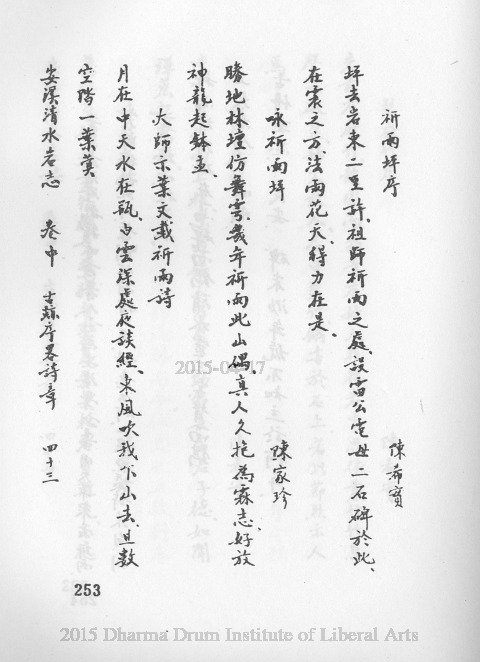 祈雨坪序　陳希實
坪去岩東二里許、祖師祈雨之處、設雷公電母二石碑於此、
在震之方、法雨花天、得力在是、
咏祈雨坪　陳家珍
勝地林壇仿舞雩、幾年祈雨此山隅、真人久抱為霖志、好放
神龍起鉢盂、
大師示葉文載祈雨詩
月在中天水在瓶、占雲深處夜談經、東風吹我下山去、且數
空階一葉蓂
安溪清水岩志　卷中　古蹟序畧詩章　四十三
253
2015-04-17
2015 Dharma Drum Institute of Liberal Arts